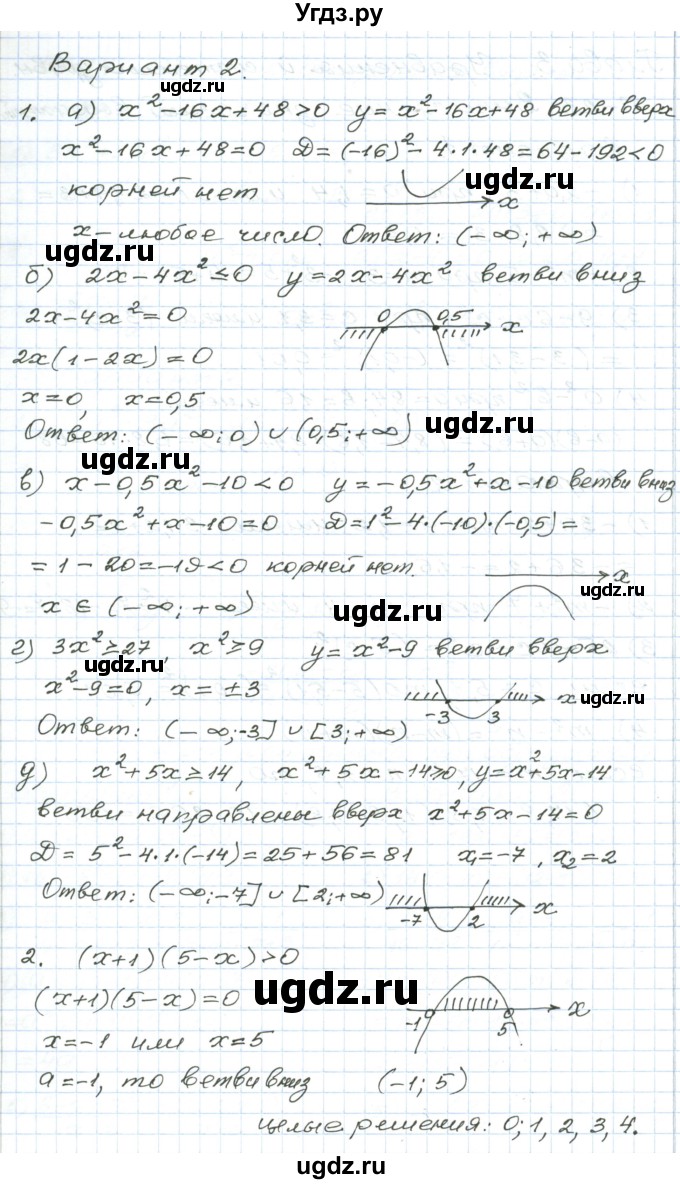 Угдз.ру
Вариант 2.
ugdz.ru
1. а) x²-16x+48>0 y=x²-16x+48 ветви вверх
x²-16x+48=0 D=(-16)²-4·1·48=64-192<0
корней нет
ugdz.ru
x
x-любое число. Ответ: (-∞;+∞)
ugdz.ru
б) 2x-4x²≤0 y=2x-4x² ветви вниз
2x-4x²=0
0 0,5 x
2x(1-2x)=0
x=0, x=0,5
ugdz.ru
Ответ: (-∞;0)∪(0,5;+∞)
ugdz.ru
в) x-0,5x²-10<0 y=-0,5x²+x-10 ветви вниз
-0,5x²+x-10=0 D=1²-4·(-10)·(-0,5)=
=1-20=-19<0 корней нет.
x
ugdz.ru
x∈(-∞;+∞)
ugdz.ru
г) 3x²≥27, x²≥9 y=x²-9 ветви вверх
ugdz.ru
x²-9=0, x=±3
-3 3 x
ugdz.ru
Ответ: (-∞;-3]∪[3;+∞)
д) x²+5x≥14, x²+5x-14≥0, y=x²+5x-14
ветви направлены вверх x²+5x-14=0
D=5²-4·1·(-14)=25+56=81 x₁=-7, x₂=2
Ответ: (-∞;-7]∪[2;+∞)
-7 2 x
ugdz.ru
2. (x+1)(5-x)>0
ugdz.ru
(x+1)(5-x)=0
-1 5 x
x=-1 или x=5
a=-1, то ветви вниз (-1;5)
целые решения: 0;1,2,3,4.
ugdz.ru
ugdz.ru